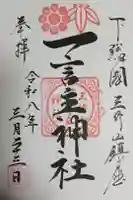 下総国
三竈山鎮座
一言主神社
奉拝
令和八年
三月二十三日